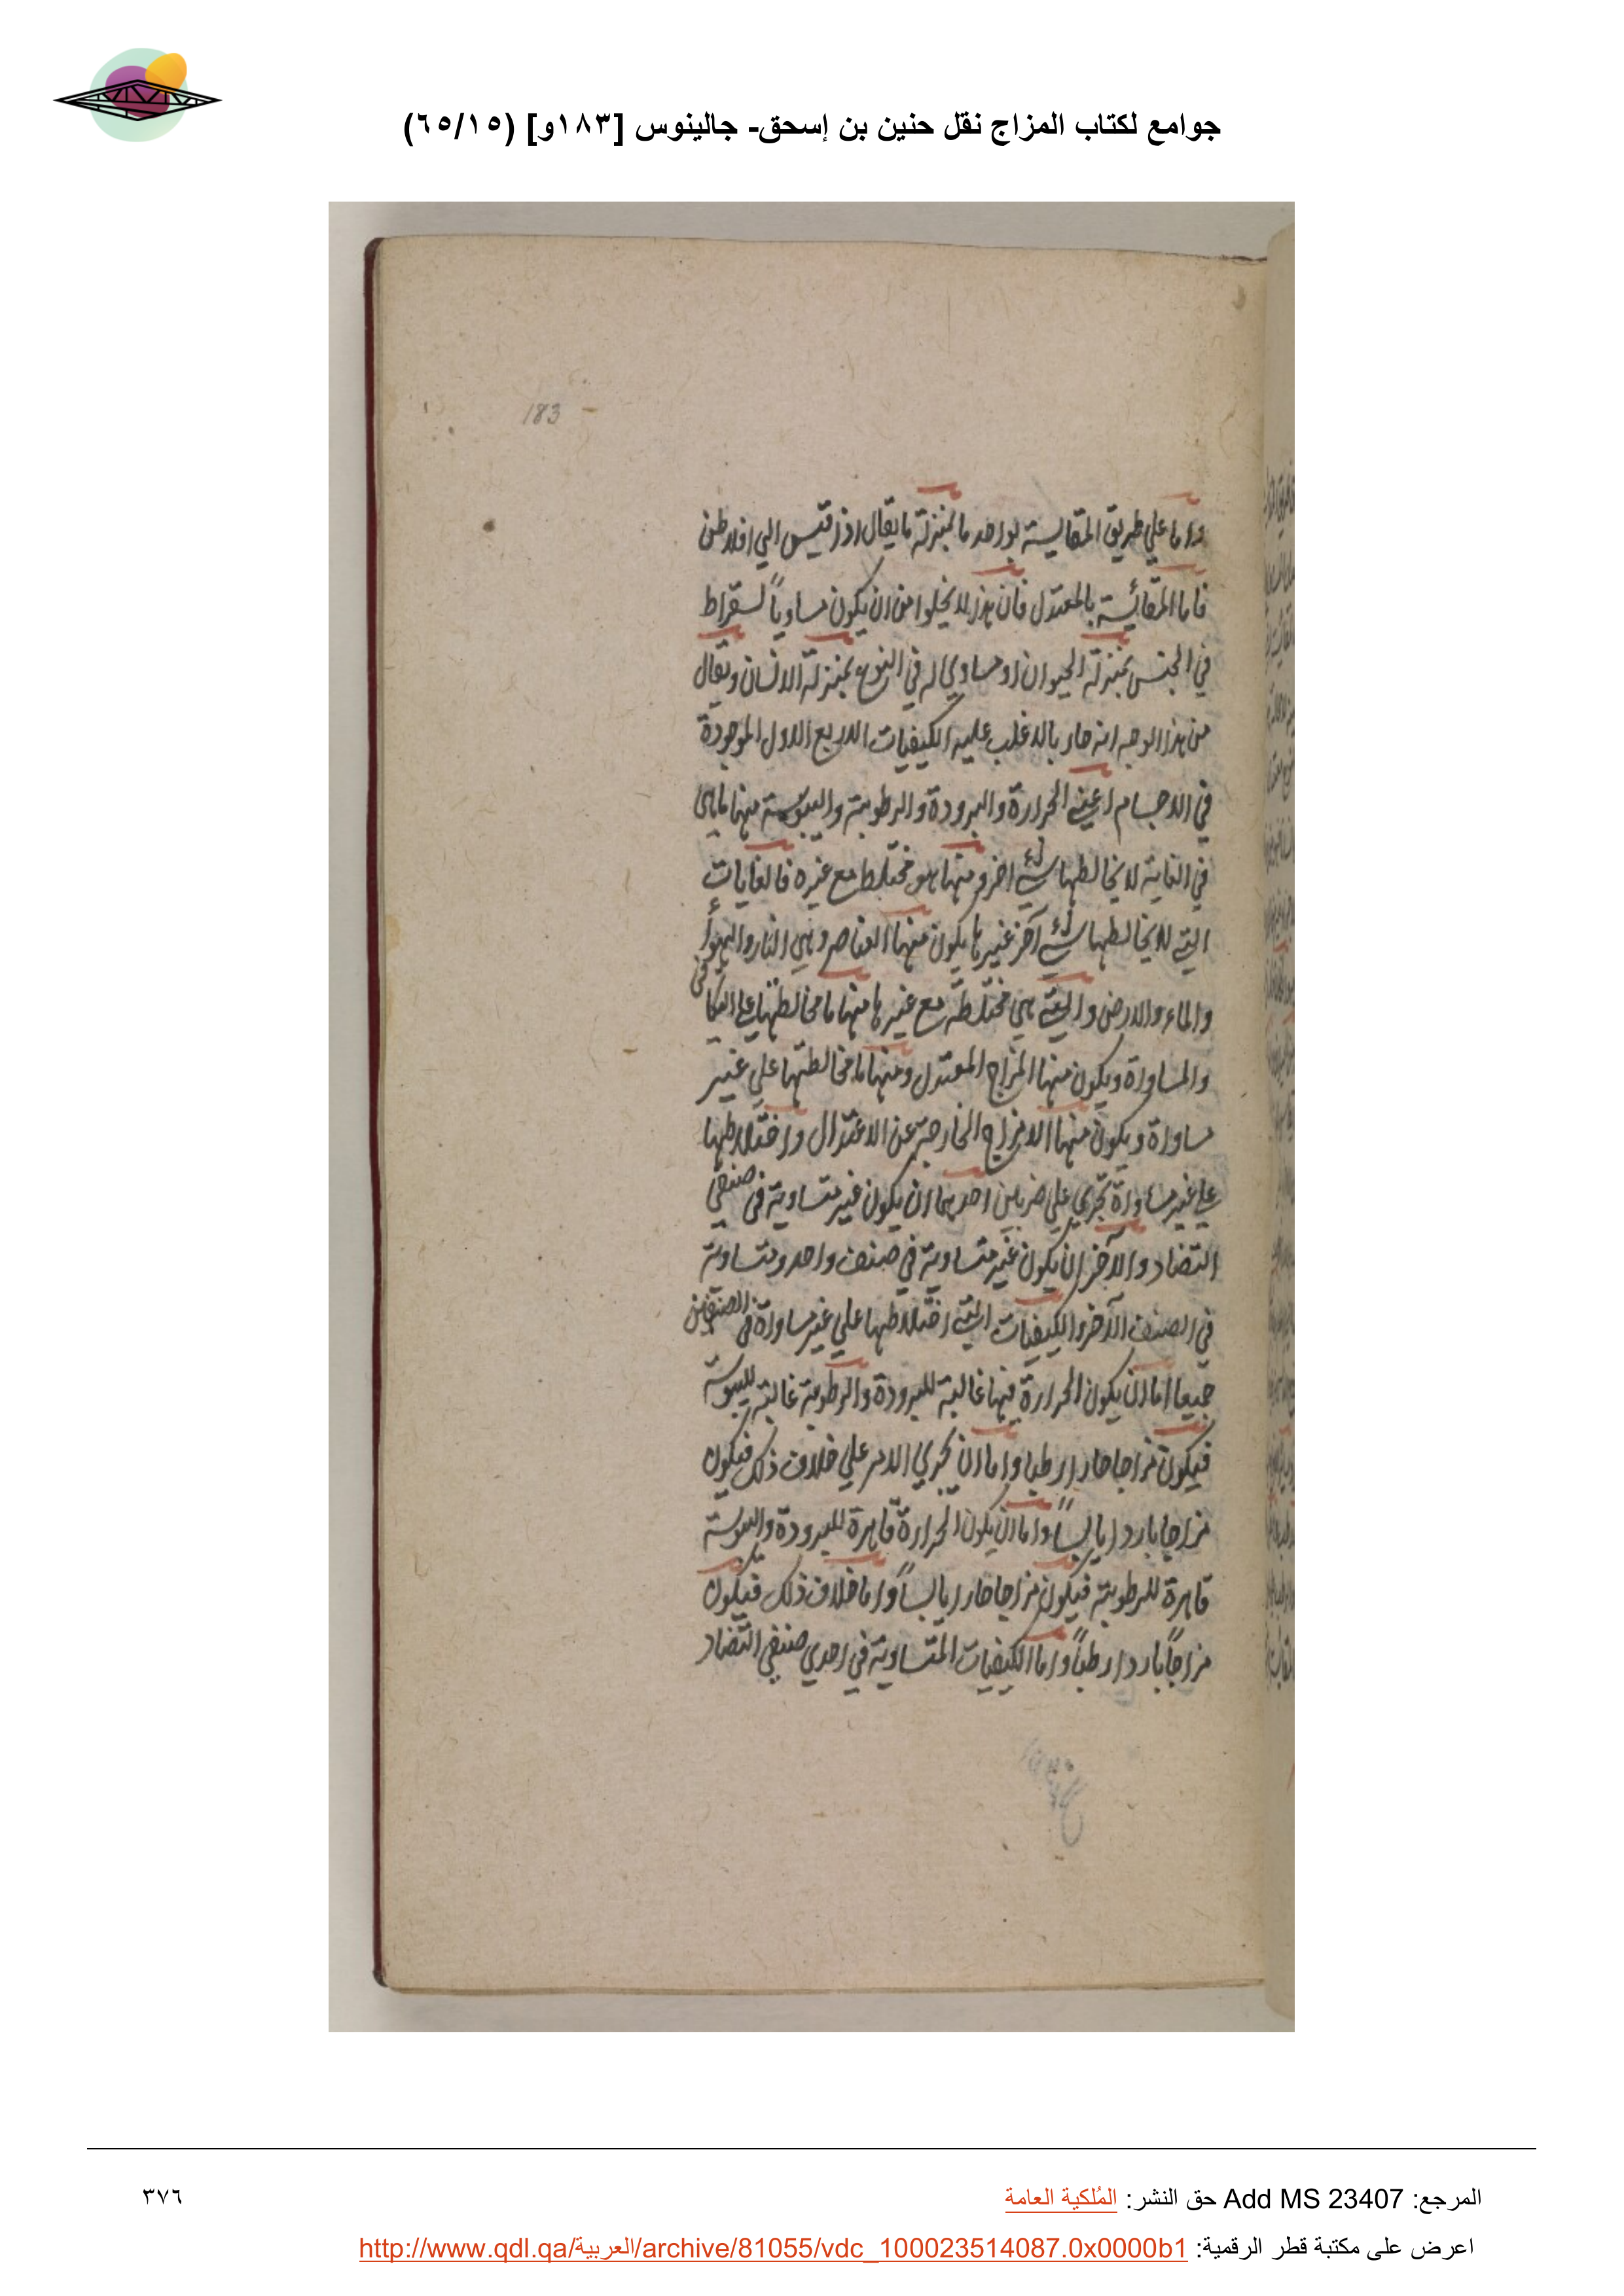 جوامع لكتاب المزاج نقل حنين بن إسحق- جالينوس [١٨٣و] (٦٥/١٥)
183
واما علي طريق المقايسة بواحد ما بمنزلة ما يقال اذا قيس الي افلاطن
فاما المقائسة بالمعتدل فان هذا لا يخلوا من ان يكون مساوياً لسقراط
في الجنس بمنزلة الحيوان او مساوي له في النوع بمنزلة الانسان ويقال
من هذا الوجه انه حار بالاغلب عليه الكيفيات الاربع الاول الموجودة
في الاجسام اعني الحرارة والبرودة والرطوبة واليبوسة منها ما هي
في الغاية لا يخالطها شيء اخر ومنها هو مختلط مع غيره فالغايات
التي لا يخالطها شيء آخر غيرها يكون منها العناصر وهي النار والهوأ
والماء والارض والتي هي مختلطة مع غيرها منها ما مخالطتها علي التكافي
والمساواة ويكون منها المزاج المعتدل ومنها ما مخالطتها علي غير
مساواة ويكون منها الامزاج الخارجة عن الاعتدال واختلاطها
علي غير مساواة تجري علي ضربين احدهما ان يكون غير متساوية في صنفي
التضاد والآخر ان يكون غير متساوية في صنف واحد ومتساوية
في الصنف الآخر والكيفيات التي اختلاطها علي غير مساواة في الصنفين
جميعا اما ان يكون الحرارة فيها غالبة للبرودة والرطوبة غالبة لليبوسة
فيكون مزاجا حارا رطبا واما ان يجري الامر علي خلاف ذلك فيكون
مزاجا باردا يابساً واما ان يكون الحرارة قاهرة للبرودة واليبوسة
قاهرة للرطوبة فيكون مزاجا حارا يابساً واما خلاف ذلك فيكون
مزاجاً باردا رطباً واما الكيفيات المتساوية في احدي صنفي التضاد
المرجع: Add MS 23407 حق النشر: المُلكية العامة
٣٧٦
اعرض على مكتبة قطر الرقمية: http://www.qdl.qa/العربية/archive/81055/vdc_100023514087.0x0000b1